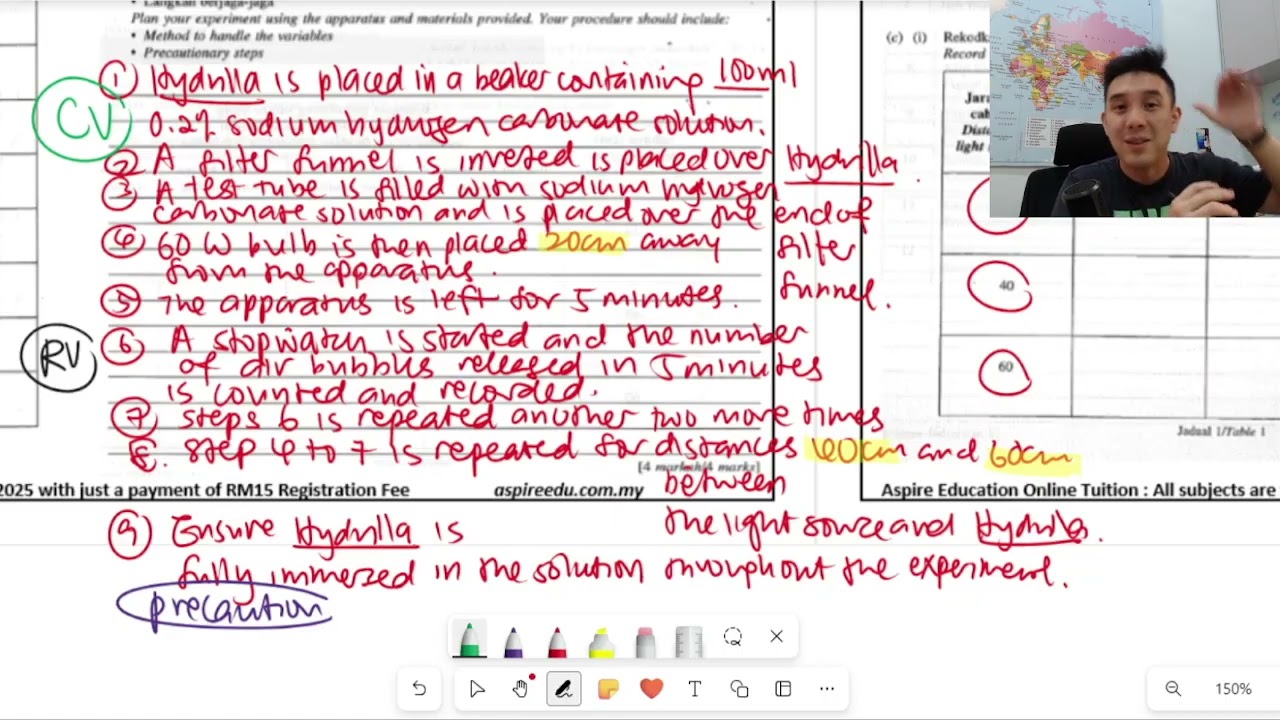 Langkah berjaga-jaga
Plan your experiment using the apparatus and materials provided. Your procedure should include:
• Method to handle the variables
• Precautionary steps
CV
① Hydrilla is placed in a beaker containing 100ml
0.2% sodium hydrogen carbonate solution.
② A filter funnel is inverted is placed over Hydrilla.
③ A test tube is filled with sodium hydrogen
carbonate solution and is placed over the end of
filter
funnel.
④ 60 W bulb is then placed 20cm away
from the apparatus.
⑤ The apparatus is left for 5 minutes.
RV
⑥ A stopwatch is started and the number
of air bubbles released in 5 minutes
is counted and recorded.
⑦ steps 6 is repeated another two more times
8. step 4 to 7 is repeated for distances 40cm and 60cm
between
the light source and Hydrilla.
[4 markah/4 marks]
2025 with just a payment of RM15 Registration Fee
aspireedu.com.my
⑨ Ensure Hydrilla is
fully immerzed in the solution throughout the experiment.
precaution
(c) (i) Rekodk
Record
Jara
cah
Dista
light
40
60
Jadual 1/Table 1
Aspire Education Online Tuition : All subjects are
T
150%